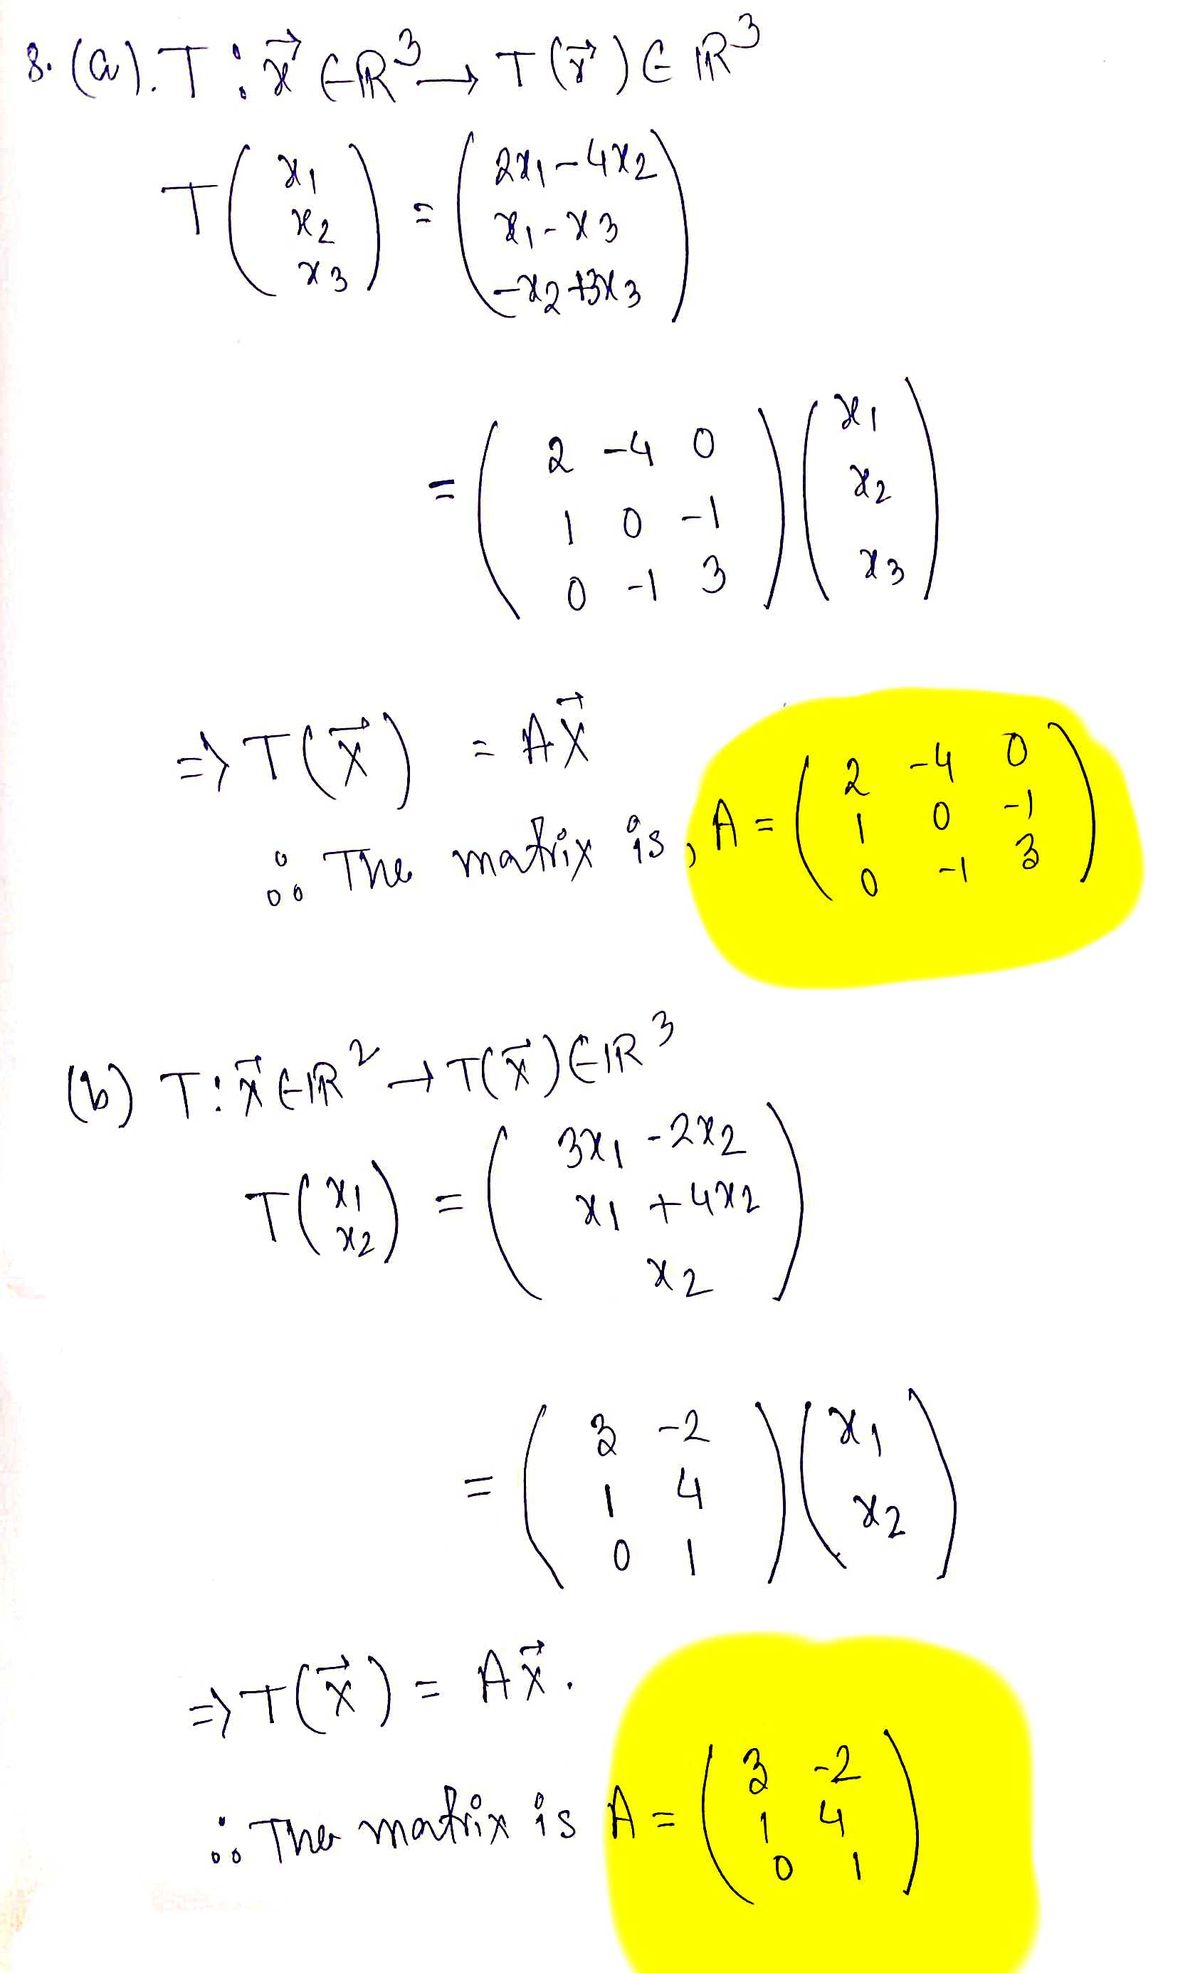 8. (a). T : x⃗ ∈ ℝ³ → T(x⃗) ∈ ℝ³
T(x₁ x₂ x₃) = (2x₁ - 4x₂
x₁ - x₃
-x₂ + 3x₃)
= (2 -4 0
1 0 -1
0 -1 3) (x₁
x₂
x₃)
⇒ T(x⃗) = Ax⃗
∴ The matrix is, A = (2 -4 0
1 0 -1
0 -1 3)
(b) T : x⃗ ∈ ℝ² → T(x⃗) ∈ ℝ³
T(x₁ x₂) = (3x₁ - 2x₂
x₁ + 4x₂
x₂)
= (3 -2
1 4
0 1) (x₁
x₂)
⇒ T(x⃗) = Ax⃗.
∴ The matrix is A = (3 -2
1 4
0 1)